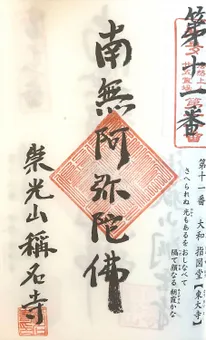 第十一番
南無阿弥陀佛
崇光山稱名寺
第十一番 大和 指図堂【東大寺】
さへられぬ光もあるをおしなべて
隔て顔なる朝霞かな